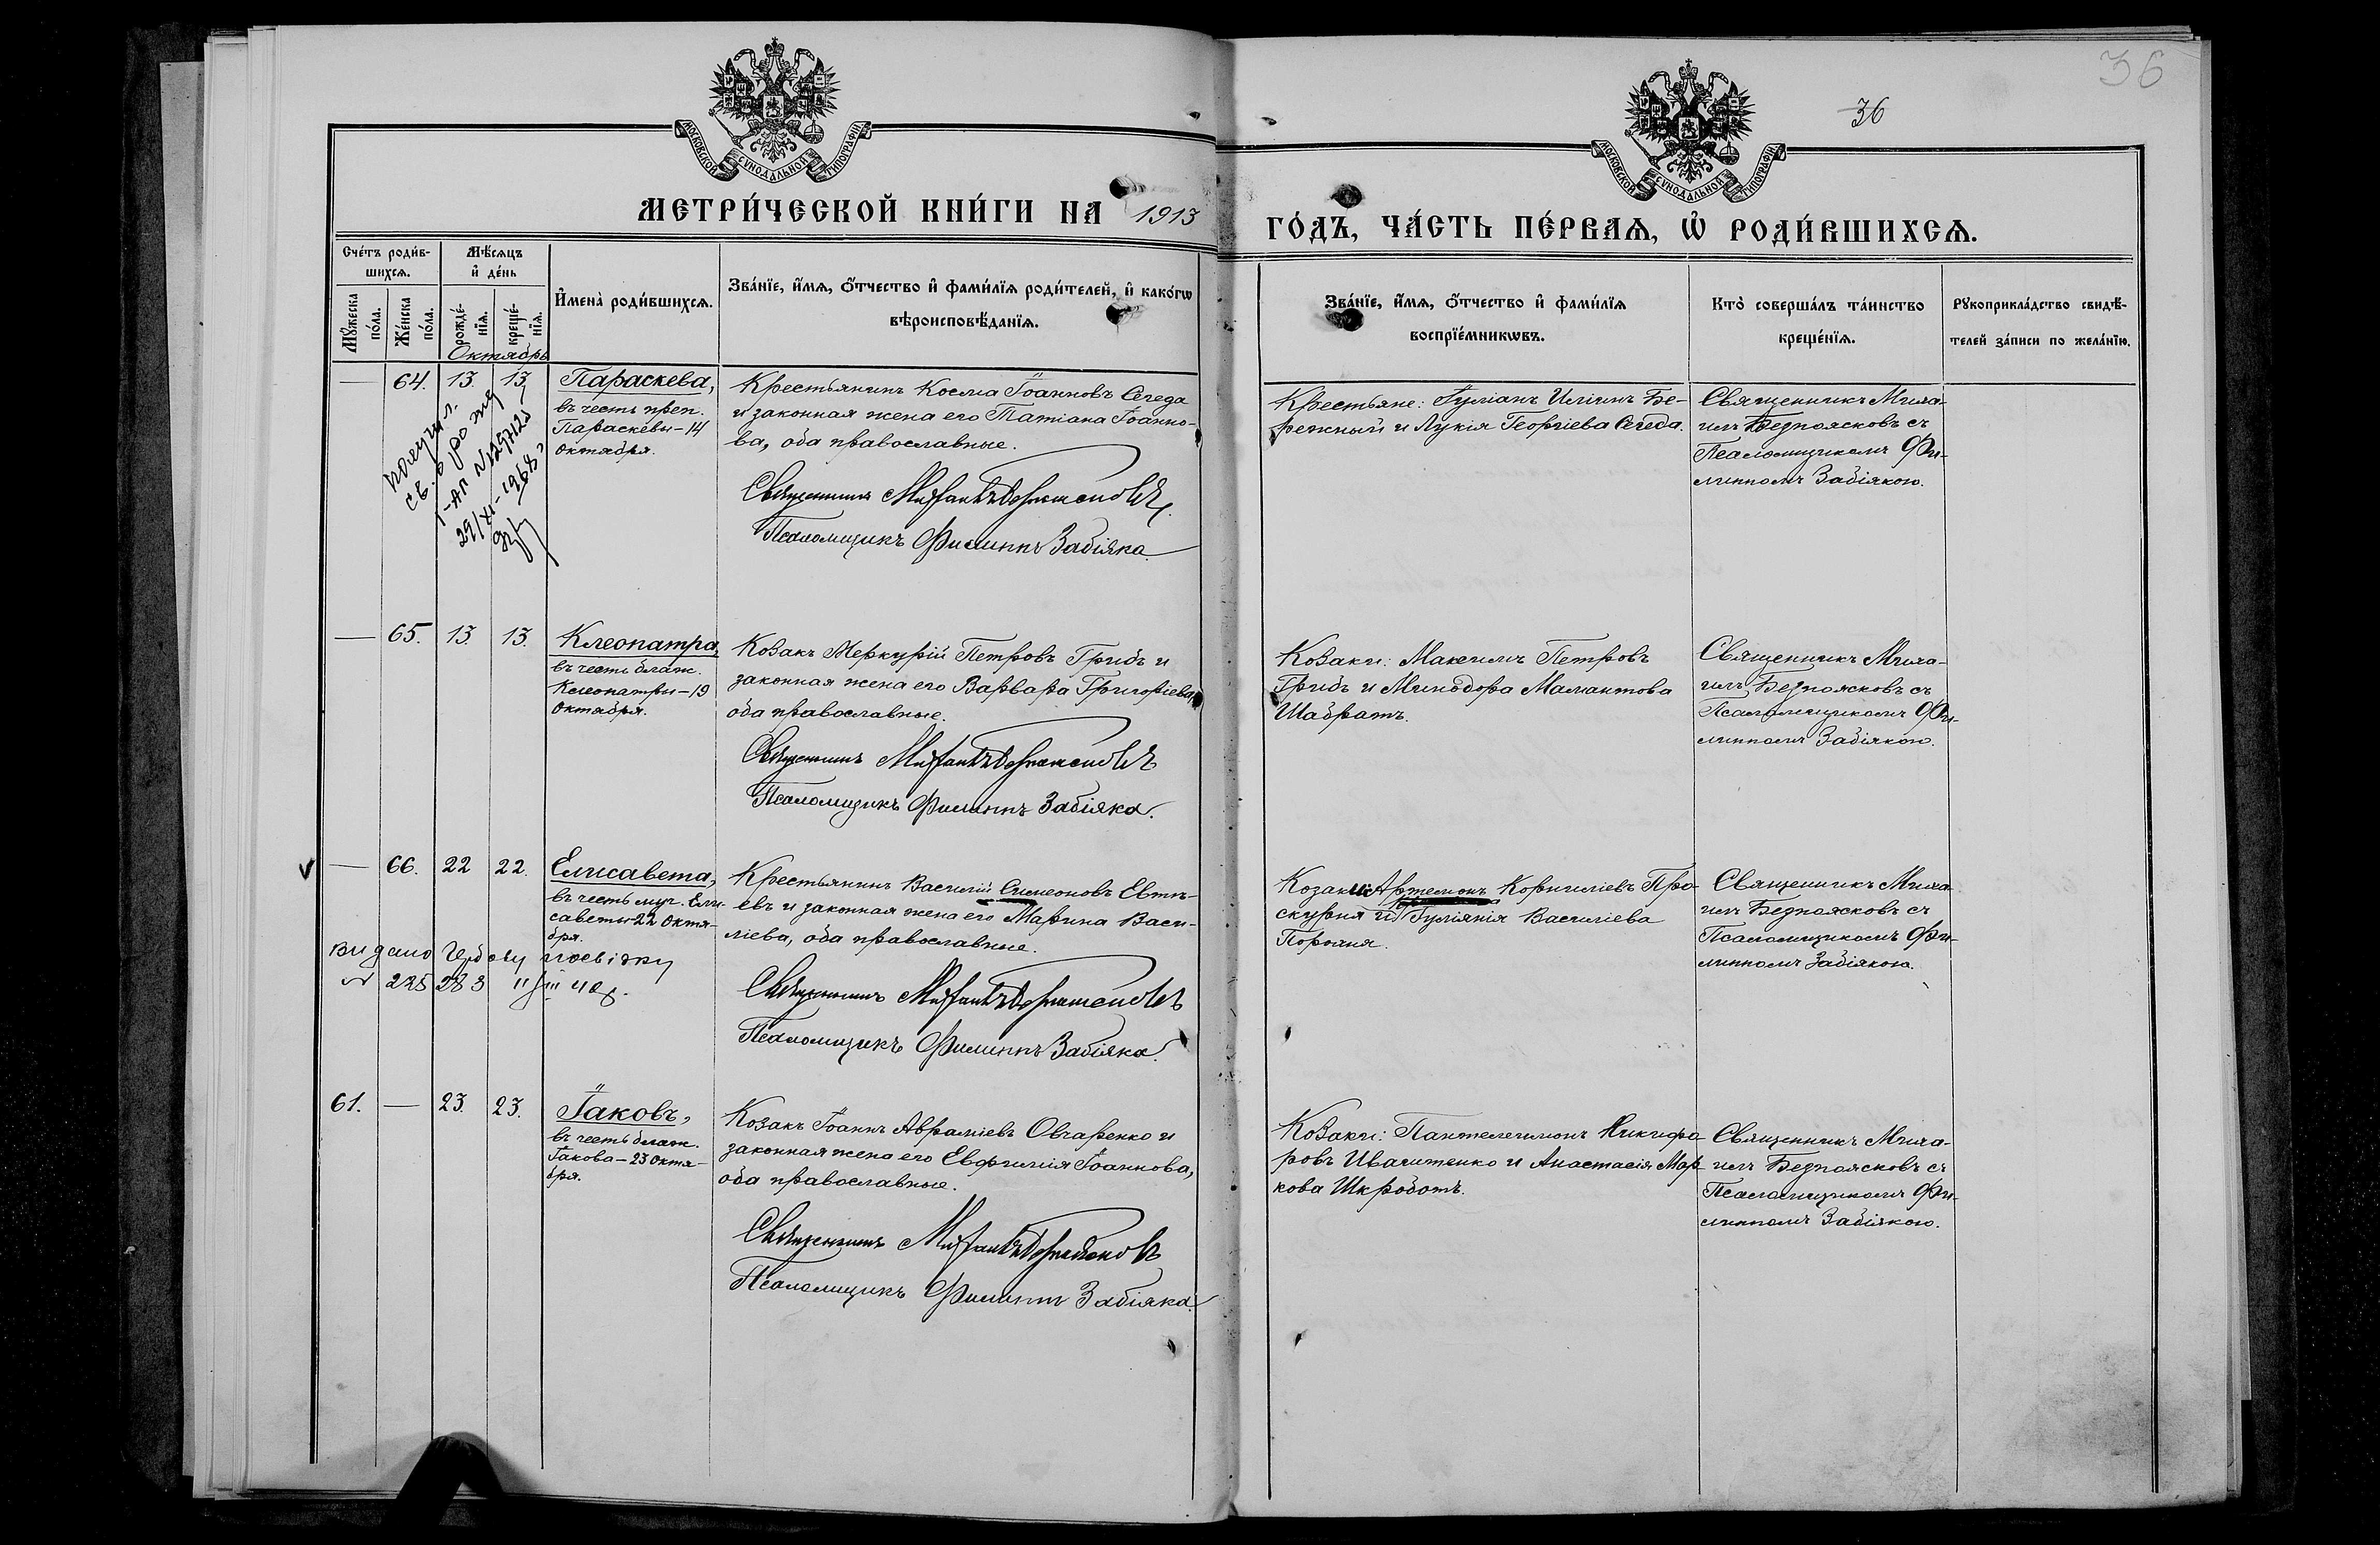 36
36
МОСКОВСКОЙ СѴНОДАЛЬНОЙ ТИПОГРАФІИ
МОСКОВСКОЙ СѴНОДАЛЬНОЙ ТИПОГРАФІИ
МЕТРИ́ЧЕСКОЙ КНИ́ГИ НА 1913
ГО́ДЪ, ЧА́СТЬ ПЕ́РВАѦ, Ѡ҆ РОДИ́ВШИХСѦ.
Сче́тъ роди́в-
шихсѧ.
Мꙋ́жеска по́ла.
Же́нска по́ла.
Мѣ́сѧцъ
и҆ де́нь
рожде́-нїѧ.
креще́-нїѧ.
И҆мена̀ роди́вшихсѧ.
Зва́нїе, и҆́мѧ, ѻ҆́тчество и҆ фами́лїѧ роди́телей, и҆ како́гѡ
вѣроисповѣ́данїѧ.
Зва́нїе, и҆́мѧ, ѻ҆́тчество и҆ фами́лїѧ
воспрїе́мникѡвъ.
Кто̀ соверша́лъ та́инство
креще́нїѧ.
Рꙋкоприкла́дство свидѣ́-
телей за́писи по жела́нїю.
Октябрь
— 64. 13. 13.
Параскева,
въ честь преп.
Параскевы – 14
октября.
Крестьянинъ Косма Іоанновъ Середа
и законная жена его Татіана Іоанно-
ва, оба православные.
Священникъ Михаилъ Безпоясковъ
Псаломщикъ Филиппъ Забіяка
Крестьяне: Іуліанъ Иліинъ Бе-
режный и Лукія Георгіева Середа.
Священникъ Миха-
илъ Безпоясковъ съ
Псаломщикомъ Фи-
липпомъ Забіякою.
получил.
св. о рожд
I-АП №1297125
29/XI-1968г
— 65. 13. 13.
Клеопатра,
въ честь блаж.
Клеопатры – 19
октября.
Козакъ Меркурій Петровъ Грибъ и
законная жена его Варвара Григоріева,
оба православные.
Священникъ Михаилъ Безпоясковъ
Псаломщикъ Филиппъ Забіяка.
Козаки: Максимъ Петровъ
Грибъ и Минодора Мамантова
Шабратъ.
Священникъ Миха-
илъ Безпоясковъ съ
Псаломщикомъ Фи-
липпомъ Забіякою.
— 66. 22 22.
Елисавета,
въ честь муч. Ели-
саветы – 22 Октя-
бря.
Крестьянинъ Василій Симеоновъ Евтѣ-
евъ и законная жена его Марина Васи-
ліева, оба православные.
Священникъ Михаилъ Безпоясковъ
Псаломщикъ Филиппъ Забіяка.
Козаки Артемонъ Корниліевъ Про-
скурня и Іуліанія Василіева
Порохня.
Священникъ Миха-
илъ Безпоясковъ съ
Псаломщикомъ Фи-
липпомъ Забіякою.
видано посвідку
61. — 23. 23.
Іаковъ,
въ честь блаж.
Іакова – 23 Октя-
бря.
Козакъ Іоаннъ Авраміевъ Овчаренко и
законная жена его Евфимія Іоаннова,
оба православные.
Священникъ Михаилъ Безпоясковъ
Псаломщикъ Филиппъ Забіяка.
Козаки: Пантелеимонъ Никифо-
ровъ Иващенко и Анастасія Мар-
кова Шкроботъ.
Священникъ Миха-
илъ Безпоясковъ съ
Псаломщикомъ Фи-
липпомъ Забіякою.